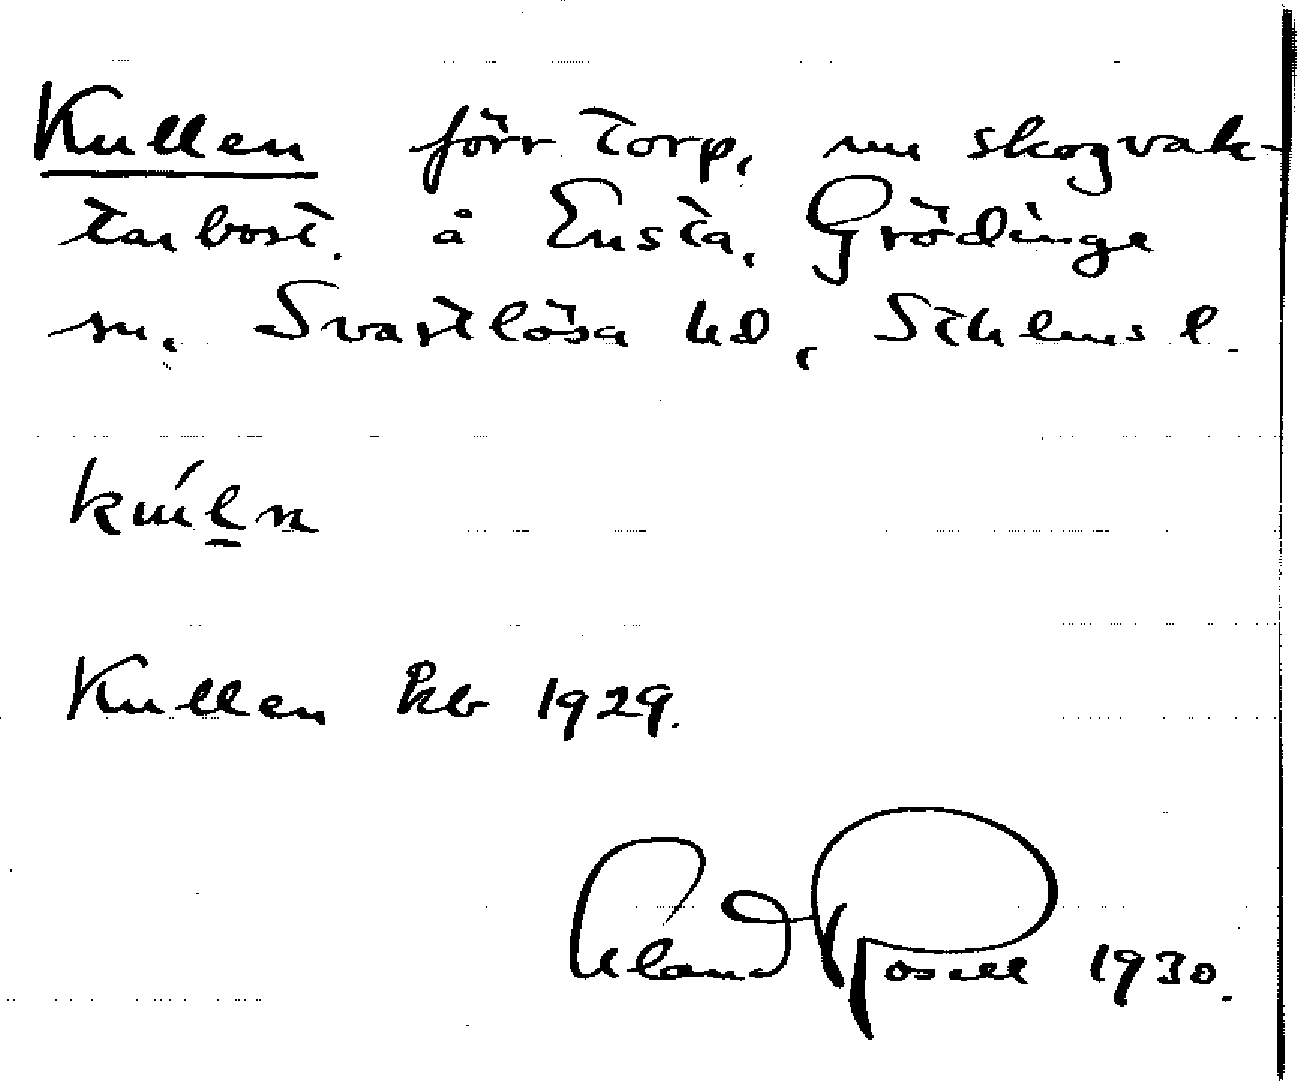 Kullen förr torp, nu skogvak-
tarbost. å Ensta, Grödinge
sn. Svartlösa hd, Sthlms l.
Kullen kb 1929.
Erland Rosell 1930.